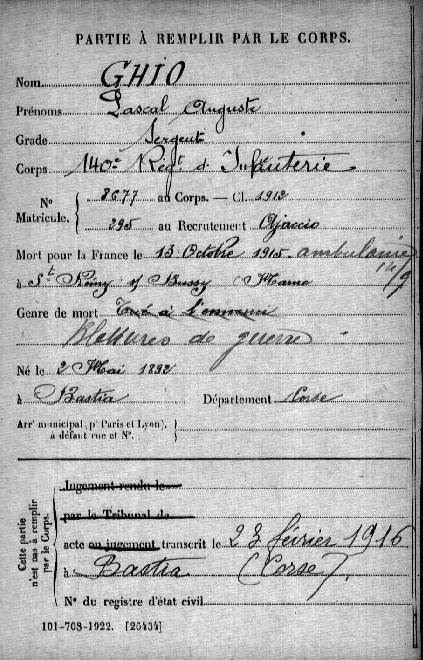 PARTIE À REMPLIR PAR LE CORPS.
Nom GHIO
Prénoms Pascal Auguste
Grade Sergent
Corps 140e Régt d'Infanterie
No Matricule. 8677 au Corps. — Cl. 1912
295 au Recrutement Ajaccio
Mort pour la France le 13 Octobre 1915 ambulance 14/9
à St Remy s/ Bussy (Marne
Genre de mort Tué à l'ennemi
Blessures de guerre
Né le 2 Mai 1892
à Bastia Département Corse
Arrt municipal (pr Paris et Lyon),
à défaut rue et No.
Cette partie
n'est pas à remplir
par le Corps.
Jugement rendu le
par le Tribunal de
acte ou jugement transcrit le 23 février 1916
à Bastia (Corse),
No du registre d'état civil
101-708-1922. [26434]